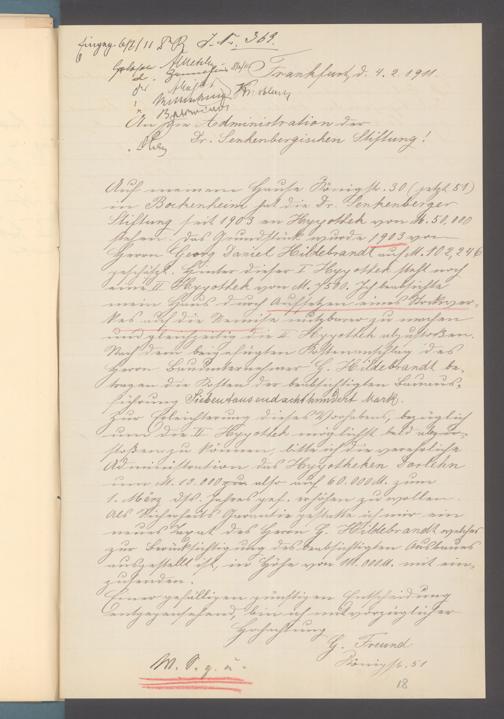 Eingeg. 6/2/11 J. N. 369.
Frankfurt, d. 4. 2. 1911.
An die Administration der
Dr. Senkenbergischen Stiftung!
Auf meinem Hause Königstr. 30 (jetzt 51)
in Bockenheim hat die Dr. Senkenberger
Stiftung seit 1903 en Hypothek von M. 50,000
stehen. das Grundstück wurde 1903 von
Herrn Georg Daniel Hildebrandt auf M. 102,246
geschätzt. Hinter dieser I Hypothek steht noch
eine II Hypothek von M. 7500. Ich beabsichte
mein Haus durch Aufsetzen eines Stockwer-
kes auf die Remise nutzbarer zu machen
und gleichzeitig die II Hypothek abzustoßen.
Nach dem beigefügten Kostenanschlag des
Herrn Bauunternehmer G. Hildebrandt be-
tragen die Kosten der beabsichtigten Bauaus-
führung Siebentausendachthundert Mark.
Zur Erleichterung dieses Vorhabens, bezüglich
um die II Hypothek möglichst bald
stoßen zu können, bitte ich die verehrliche
Administration das Hypotheken Darlehn
um M. 10.000 also auf 60.000 M. zum
1. März ds. Jahres gef. erhöhen zu wollen.
Als Sicherheits Garantie gestatte ich mir ein
neues Taxat des Herrn G. Hildebrandt welches
zur Berücksichtigung des beabsichtigten Ausbaues
ausgestellt ist, in Höhe von 111.000 M. mit ein-
zusenden.
Einer gefälligen günstigen Entscheidung
entgegensehend, bin ich mit vorzüglicher
Hochachtung
G. Freund
Königstr. 51
18